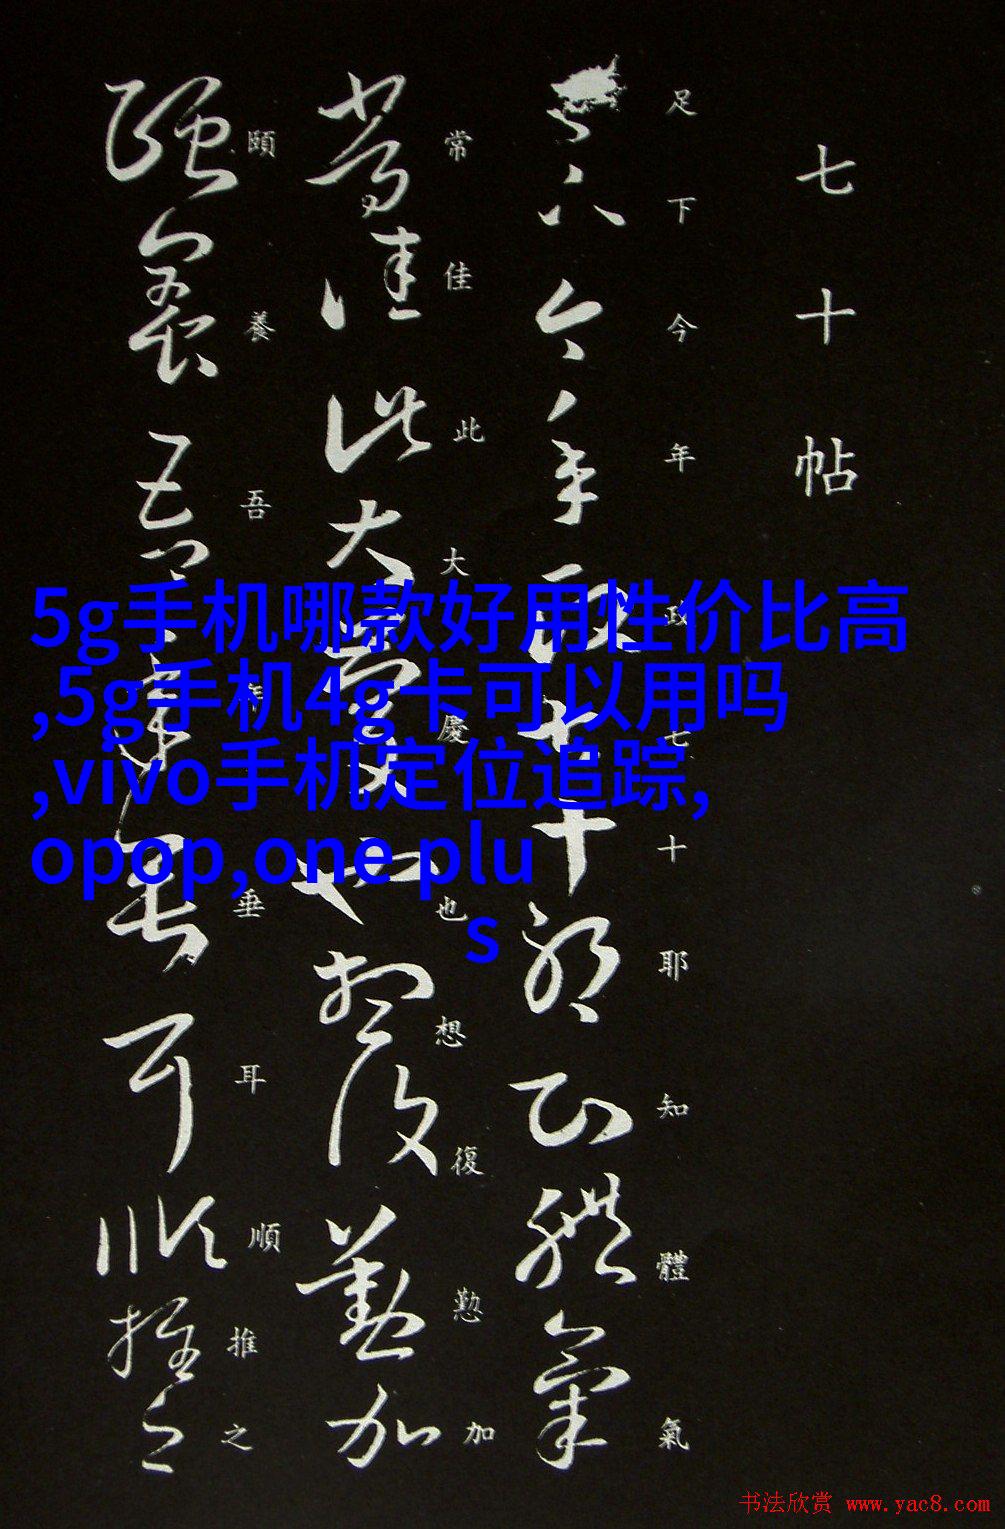 七十帖
足下今年政七十耶知體氣
常佳此大慶也想復懃加
頤養吾年垂耳順推之
5g手机哪款好用性价比高
,5g手机4g卡可以用吗
,vivo手机定位追踪,
opop,one plu
s
书法欣赏 www.yac8.com